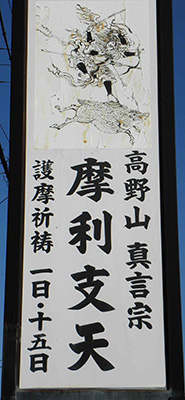 高野山 真言宗
摩利支天
護摩祈祷 一日・十五日